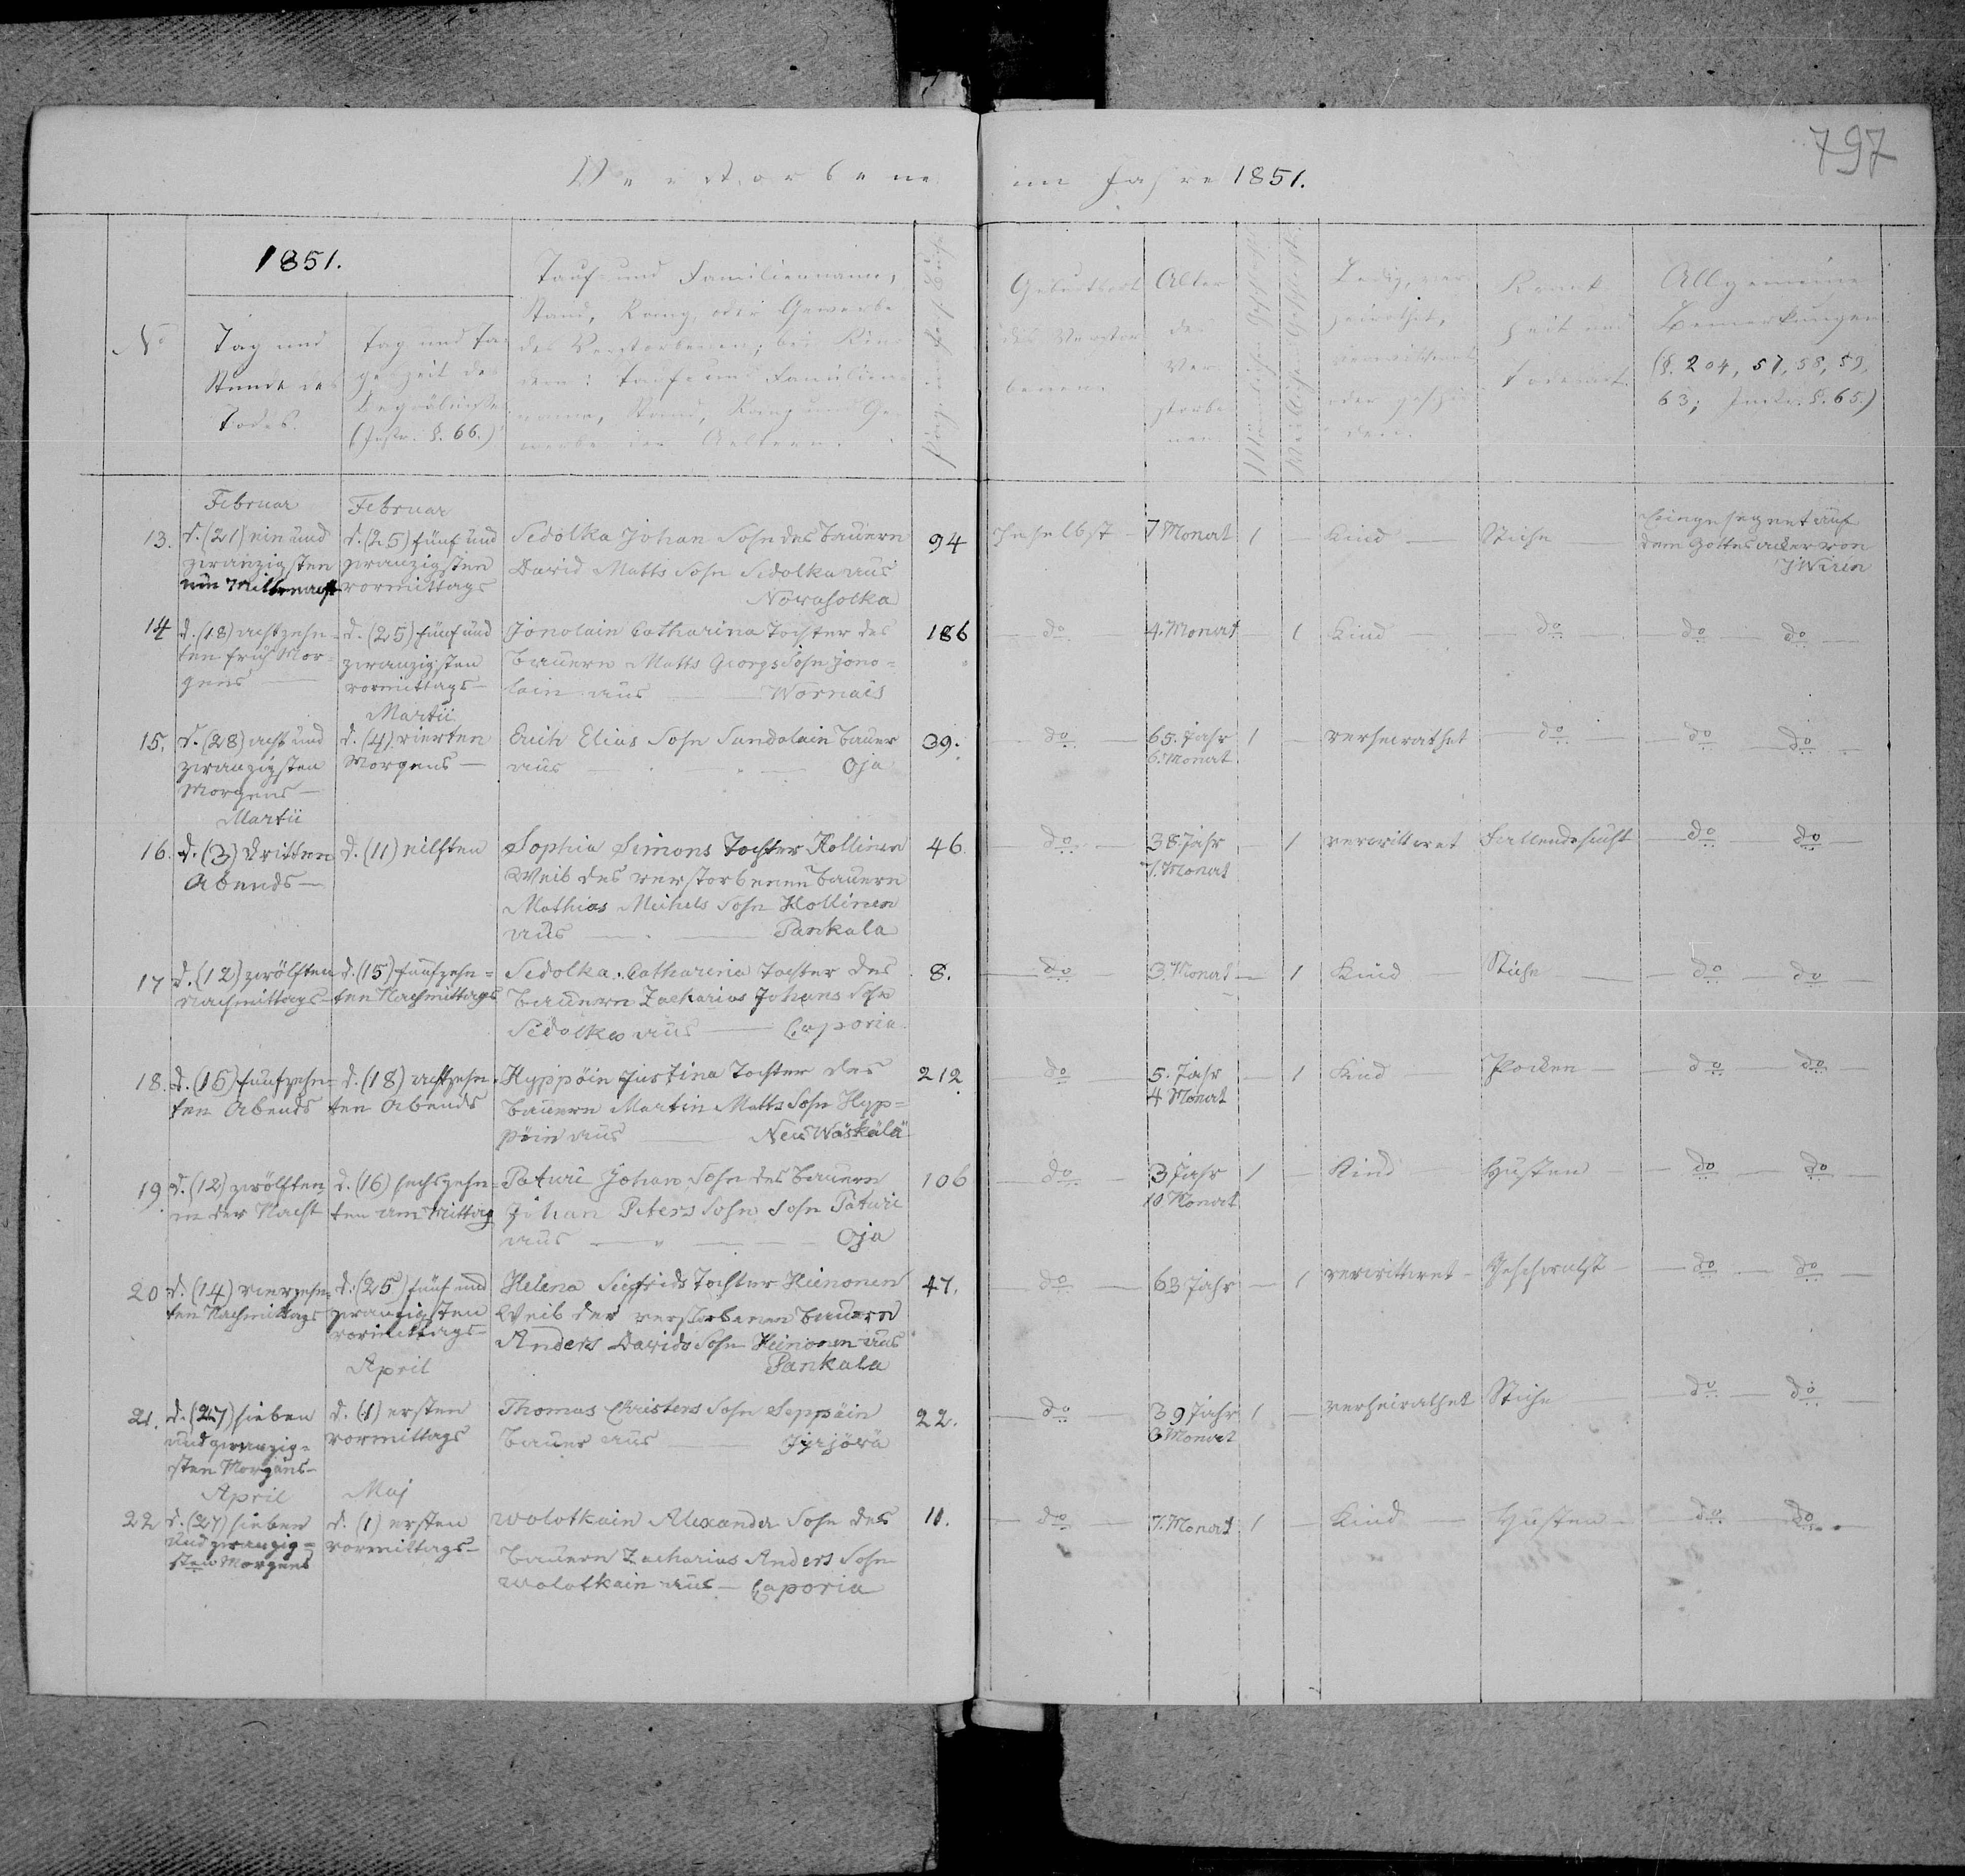 797
Verstorbene im Jahre 1851.
1851.
No
Tag und
Stunde des
Todes.
Tag und Ta-
geszeit des
Begräbnisses
(Instr. §. 66.)
Tauf- und Familienname,
Stand, Rang oder Gewerbe
des Verstorbenen; bei Kin-
dern: Tauf- und Familien-
name, Stand, Rang und Ge-
werbe der Aeltern.
Geburtsort
des Verstor-
benen.
Alter
des
Ver-
storbe-
nen.
Männlichen Geschlechts.
Weiblichen Geschlechts.
Ledig, ver-
heirathet,
verwittwet
oder geschie-
den.
Krank-
heit und
Todesart.
Allgemeine
Bemerkungen
(§. 204, 57, 58, 59,
63; Instr. §. 65.)
Februar
Februar
13. d. (21) ein und
zwanzigsten
um Mitternacht
d. (25) fünf und
zwanzigsten
vormittags
Sedolka Johan Sohn des Bauern
David Matts Sohn Sedolka aus
Nowasolka
94
Daselbst - 7 Monat 1 - Kind - Stiche -
Eingesegnet auf
dem Gottesacker von
14 d. (18) achtzehn-
ten früh Mor-
gens -
d. (25) fünf und
zwanzigsten
vormittags -
Jonolain Catharina Tochter des
Bauern Matts Georgs Sohn Jono-
lain aus - Wornais
186
do 4. Monat - 1 Kind do do do
Martii
15. d. (28) acht und
zwanzigsten
Morgens -
d. (4) vierten
Morgens -
Erich Elias Sohn Sundolain Bauer
aus - Oja
39.
do 65. Jahr 1 - verheirathet do do do
6. Monat
Martii
16. d. (3) dritten
Abends -
d. (11) eilften
Sophia Simons Tochter Kollinen
Weib des verstorbenen Bauern
Mathias Michels Sohn Kollinen
aus - Pankala
46
do 38. Jahr - 1 verwittwet Fallendesucht do do
7. Monat
17 d. (12) zwölften
nachmittags -
d. (15) fünfzehn-
ten Nachmittags
Sedolka Catharina Tochter des
Bauern Zacharias Johans Sohn
Sedolka aus - Caporia
8.
do 3. Monat - 1 Kind Stiche - do do
18. d. (15) fünfzehn-
ten Abends
d. (18) achtzehn-
ten Abends
Hyppöin Justina Tochter des
Bauern Martin Matts Sohn Hyp-
pöin aus - Neu Wäskälä
212
do 5. Jahr - 1 Kind - Pocken - do do
4 Monat
19. d. (12) zwölften
in der Nacht
d. (16) sechszehn-
ten am Mittag
Paturi Johan Sohn des Bauern
Johan Peters Sohn Sohn Paturi
aus - Oja
106
do 3 Jahr 1 - Kind - Husten - do do
10 Monat
20 d. (14) vierzehn-
ten Nachmittags
d. (25) fünf und
zwanzigsten
vormittags -
Helena Siegfrids Tochter Hienonen
Weib der verstorbenen Bauern
Anders Davids Sohn Heinonen aus
Pankala
47.
do 63 Jahr - 1 verwittwet - Geschwulst - do do
April
21. d. (27) sieben
und zwanzig-
sten Morgens -
d. (1) ersten
vormittags
Thomas Christers Sohn Seppäin
Bauer aus Jyrjöwä
22.
do 39 Jahr 1 - verheirathet Stiche - do do
3 Monat
April
Maj
22 d. (27) sieben
und zwanzig-
sten Morgens
d. (1) ersten
vormittags -
Wolotkain Alexander Sohn des
Bauern Zacharias Anders Sohn
Wolotkain aus - Caporia
11.
do 7. Monat 1 - Kind - Husten - do do